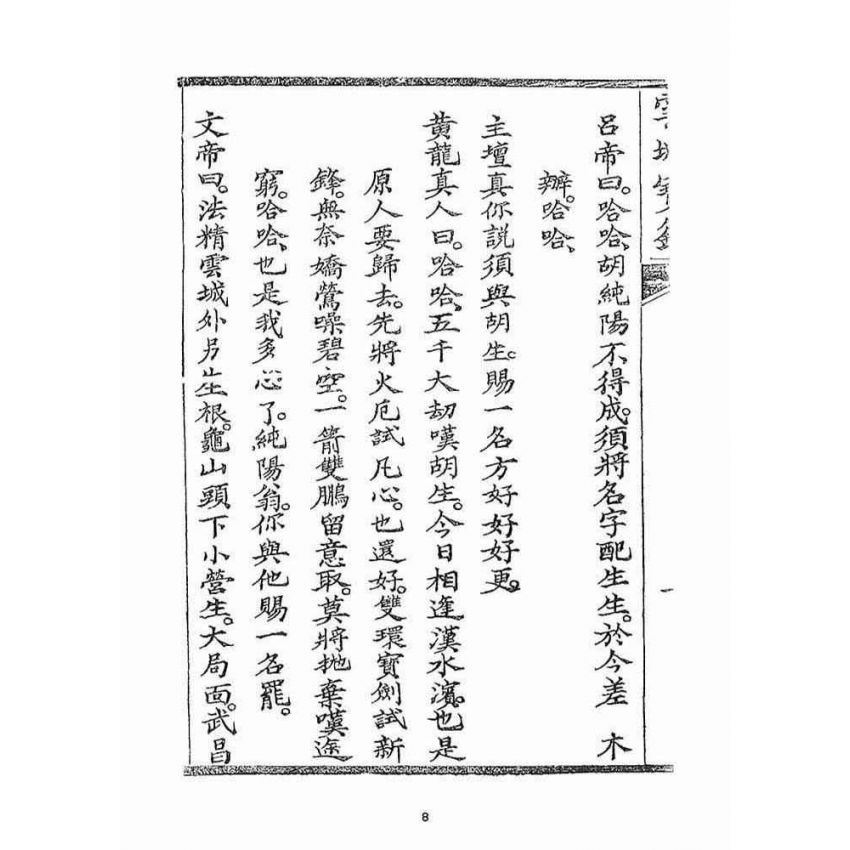 呂帝曰。哈哈、胡純陽不得成。須將名字配生生。於今差 木
辦。哈哈、
主壇真你説須與胡生。賜一名方好好好更。
黄龍真人曰。哈哈、五千大劫嘆胡生。今日相逢漢水濱。也是
原人要歸去。先將火厄試凡心。也還好。雙環寶劍試新
鋒。無奈嬌鶯噪碧空。一箭雙鵬留意取。莫將抛棄嘆途
窮。哈哈、也是我多心了。純陽翁。你與他賜一名罷。
文帝曰。法精雲城外另生根。龜山頭下小營生。大局面。武昌
一
8